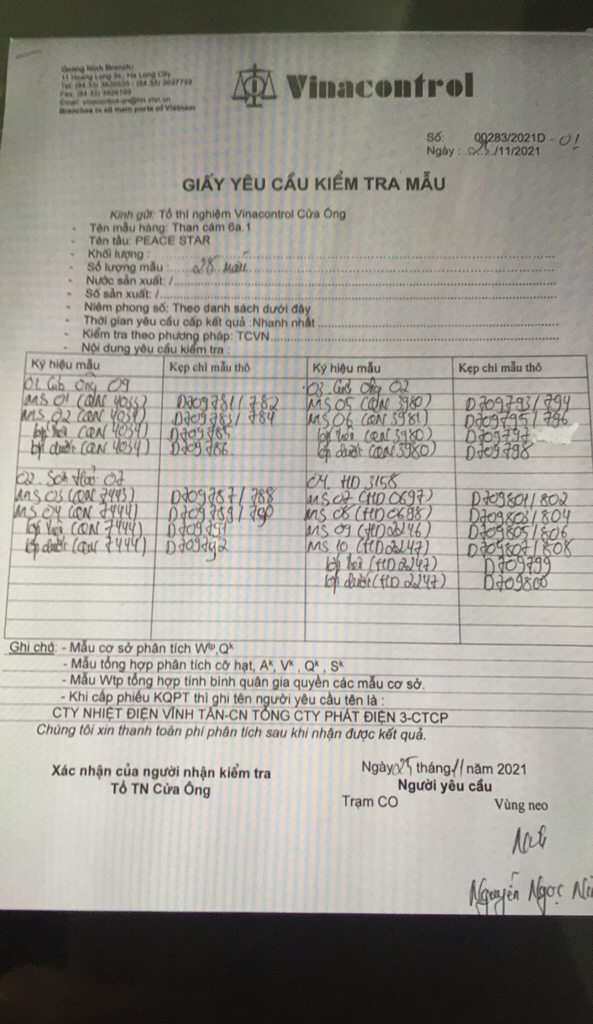 Quang Ninh Branch:
11 Hoang Long St., Ha Long City
Branches in all main ports of Vietnam
Vinacontrol
Số: 00283/2021D -01
Ngày : 25/11/2021
GIẤY YÊU CẦU KIỂM TRA MẪU
Kính gửi: Tổ thí nghiệm Vinacontrol Cửa Ông
- Tên mẫu hàng: Than cám 6a.1
- Tên tàu: PEACE STAR
- Khối lượng :
- Số lượng mẫu : 28 mẫu
- Nước sản xuất: /
- Số sản xuất: /
- Niêm phong số: Theo danh sách dưới đây
- Thời gian yêu cầu cấp kết quả :Nhanh nhất
- Kiểm tra theo phương pháp: TCVN
- Nội dung yêu cầu kiểm tra :
Ký hiệu mẫu Kẹp chì mẫu thô Ký hiệu mẫu Kẹp chì mẫu thô
01 Ông 09 03 Ông 02
MS 01 (QN 4033) D709781/782 MS 05 (QN 3980) D709793/794
MS 02 (QN 4034) D709783/784 MS 06 (QN 3981) D709795/796
lớp trên (QN 4034) D709785 lớp trên (QN 3980) D709797
lớp dưới (QN 4034) D709786 lớp dưới (QN 3980) D709798
02. 07 04. HD 3158
MS 03 (QN 7443) D709787/788 MS 07 (HD 0697) D709801/802
MS 04 (QN 7444) D709789/790 MS 08 (HD 0698) D709803/804
lớp trên (QN 7444) D709791 MS 09 (HD 2246) D709805/806
lớp dưới (QN 7444) D709792 MS 10 (HD 2247) D709807/808
lớp trên (HD 2247) D709799
lớp dưới (HD 2247) D709800
Ghi chú: - Mẫu cơ sở phân tích Wtp,Qk
- Mẫu tổng hợp phân tích cỡ hạt, Ak, Vk, Qk, Sk
- Mẫu Wtp tổng hợp tính bình quân gia quyền các mẫu cơ sở.
- Khi cấp phiếu KQPT thì ghi tên người yêu cầu tên là :
CTY NHIỆT ĐIỆN VĨNH TÂN-CN TỔNG CTY PHÁT ĐIỆN 3-CTCP
Chúng tôi xin thanh toán phí phân tích sau khi nhận được kết quả.
Xác nhận của người nhận kiểm tra
Tổ TN Cửa Ông
Ngày 25 tháng 11 năm 2021
Người yêu cầu
Trạm CO Vùng neo
Nguyễn Ngọc